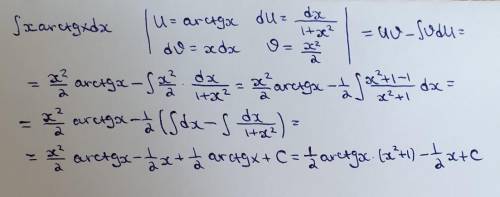 ∫xarctgxdx | U = arctgx dU = dx/(1+x²) | = UV - ∫VdU =
| dV = xdx V = x²/2 |
= x²/2 arctgx - ∫ x²/2 · dx/(1+x²) = x²/2 arctgx - 1/2 ∫ (x²+1-1)/(x²+1) dx =
= x²/2 arctgx - 1/2 (∫dx - ∫ dx/(1+x²)) =
= x²/2 arctgx - 1/2 x + 1/2 arctgx + C = 1/2 arctgx · (x²+1) - 1/2 x + C